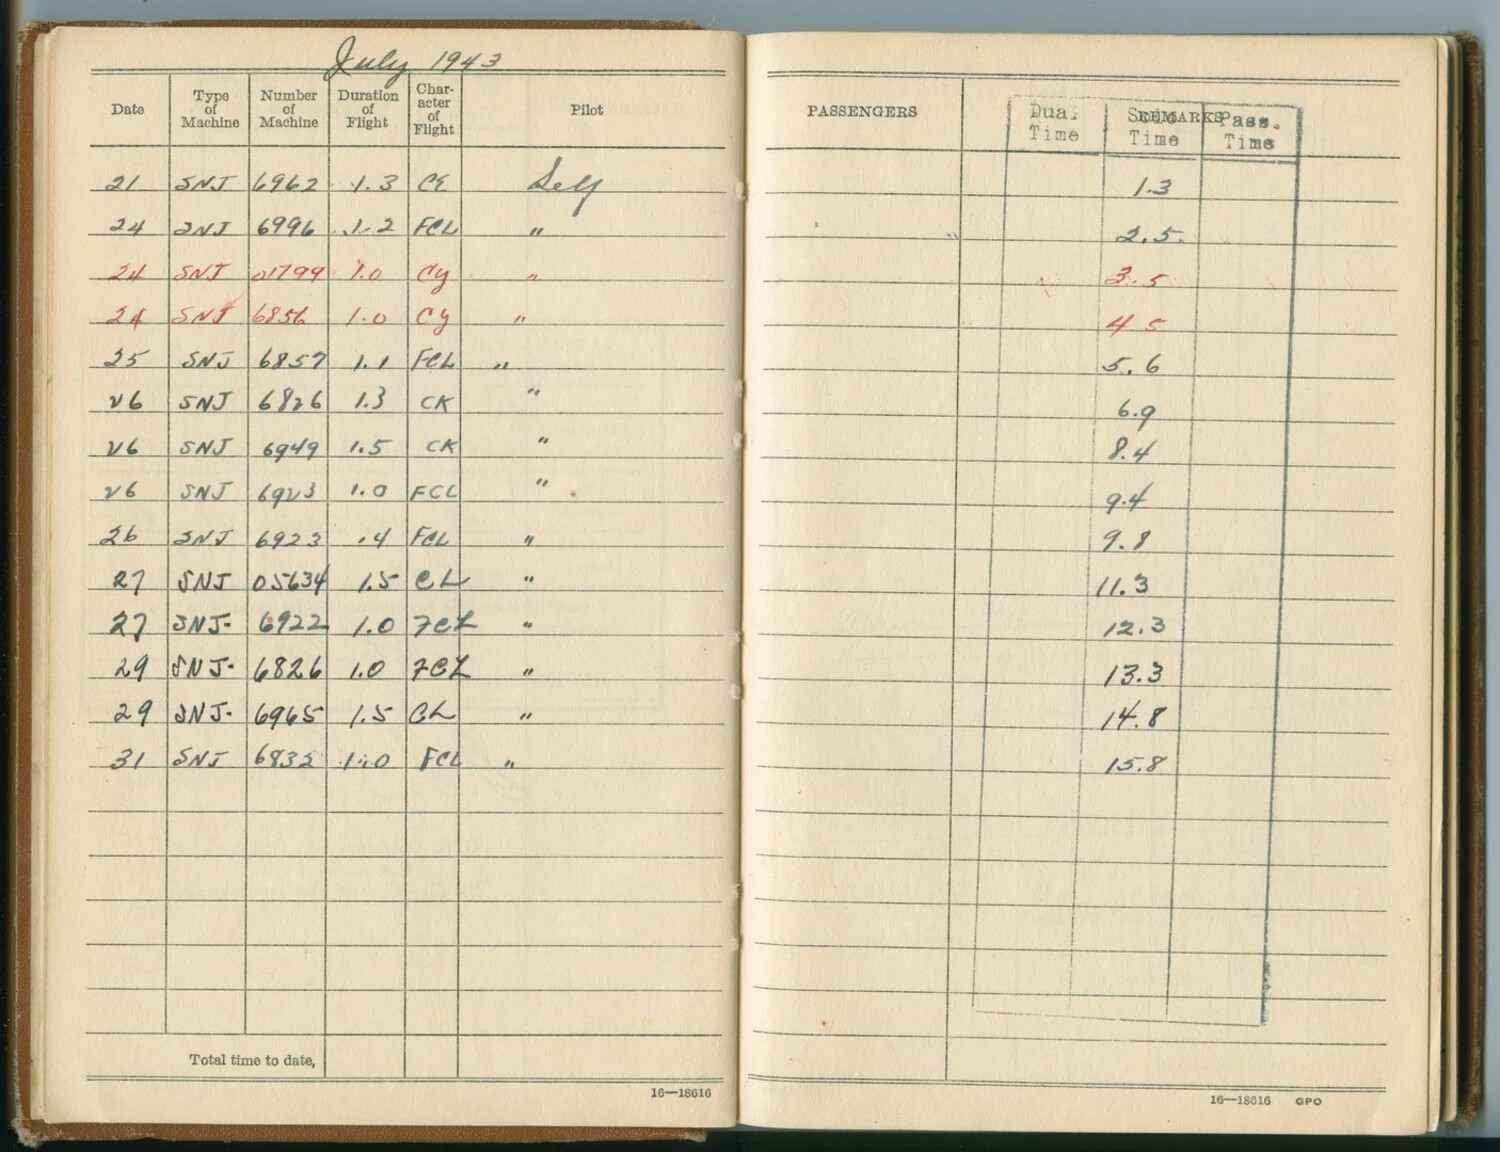 July 1943
Date Type of Machine Number of Machine Duration of Flight Character of Flight Pilot PASSENGERS REMARKS
Dual Time Solo Time Pass. Time
21 SNJ 6962 1.3 CK Self 1.3
24 SNJ 6996 1.2 FCL " 2.5
24 SNJ 01799 1.0 Cy " 3.5
24 SNJ 6856 1.0 Cy " 4 5
25 SNJ 6857 1.1 FCL " 5.6
26 SNJ 6826 1.3 CK " 6.9
26 SNJ 6949 1.5 CK " 8.4
26 SNJ 6923 1.0 FCL " 9.4
26 SNJ 6923 .4 FCL " 9.8
27 SNJ 05634 1.5 CL " 11.3
27 SNJ- 6922 1.0 FCL " 12.3
29 SNJ- 6826 1.0 FCL " 13.3
29 SNJ- 6965 1.5 CL " 14.8
31 SNJ 6832 1.0 FCL " 15.8
Total time to date,
16—18616
16—18616 GPO